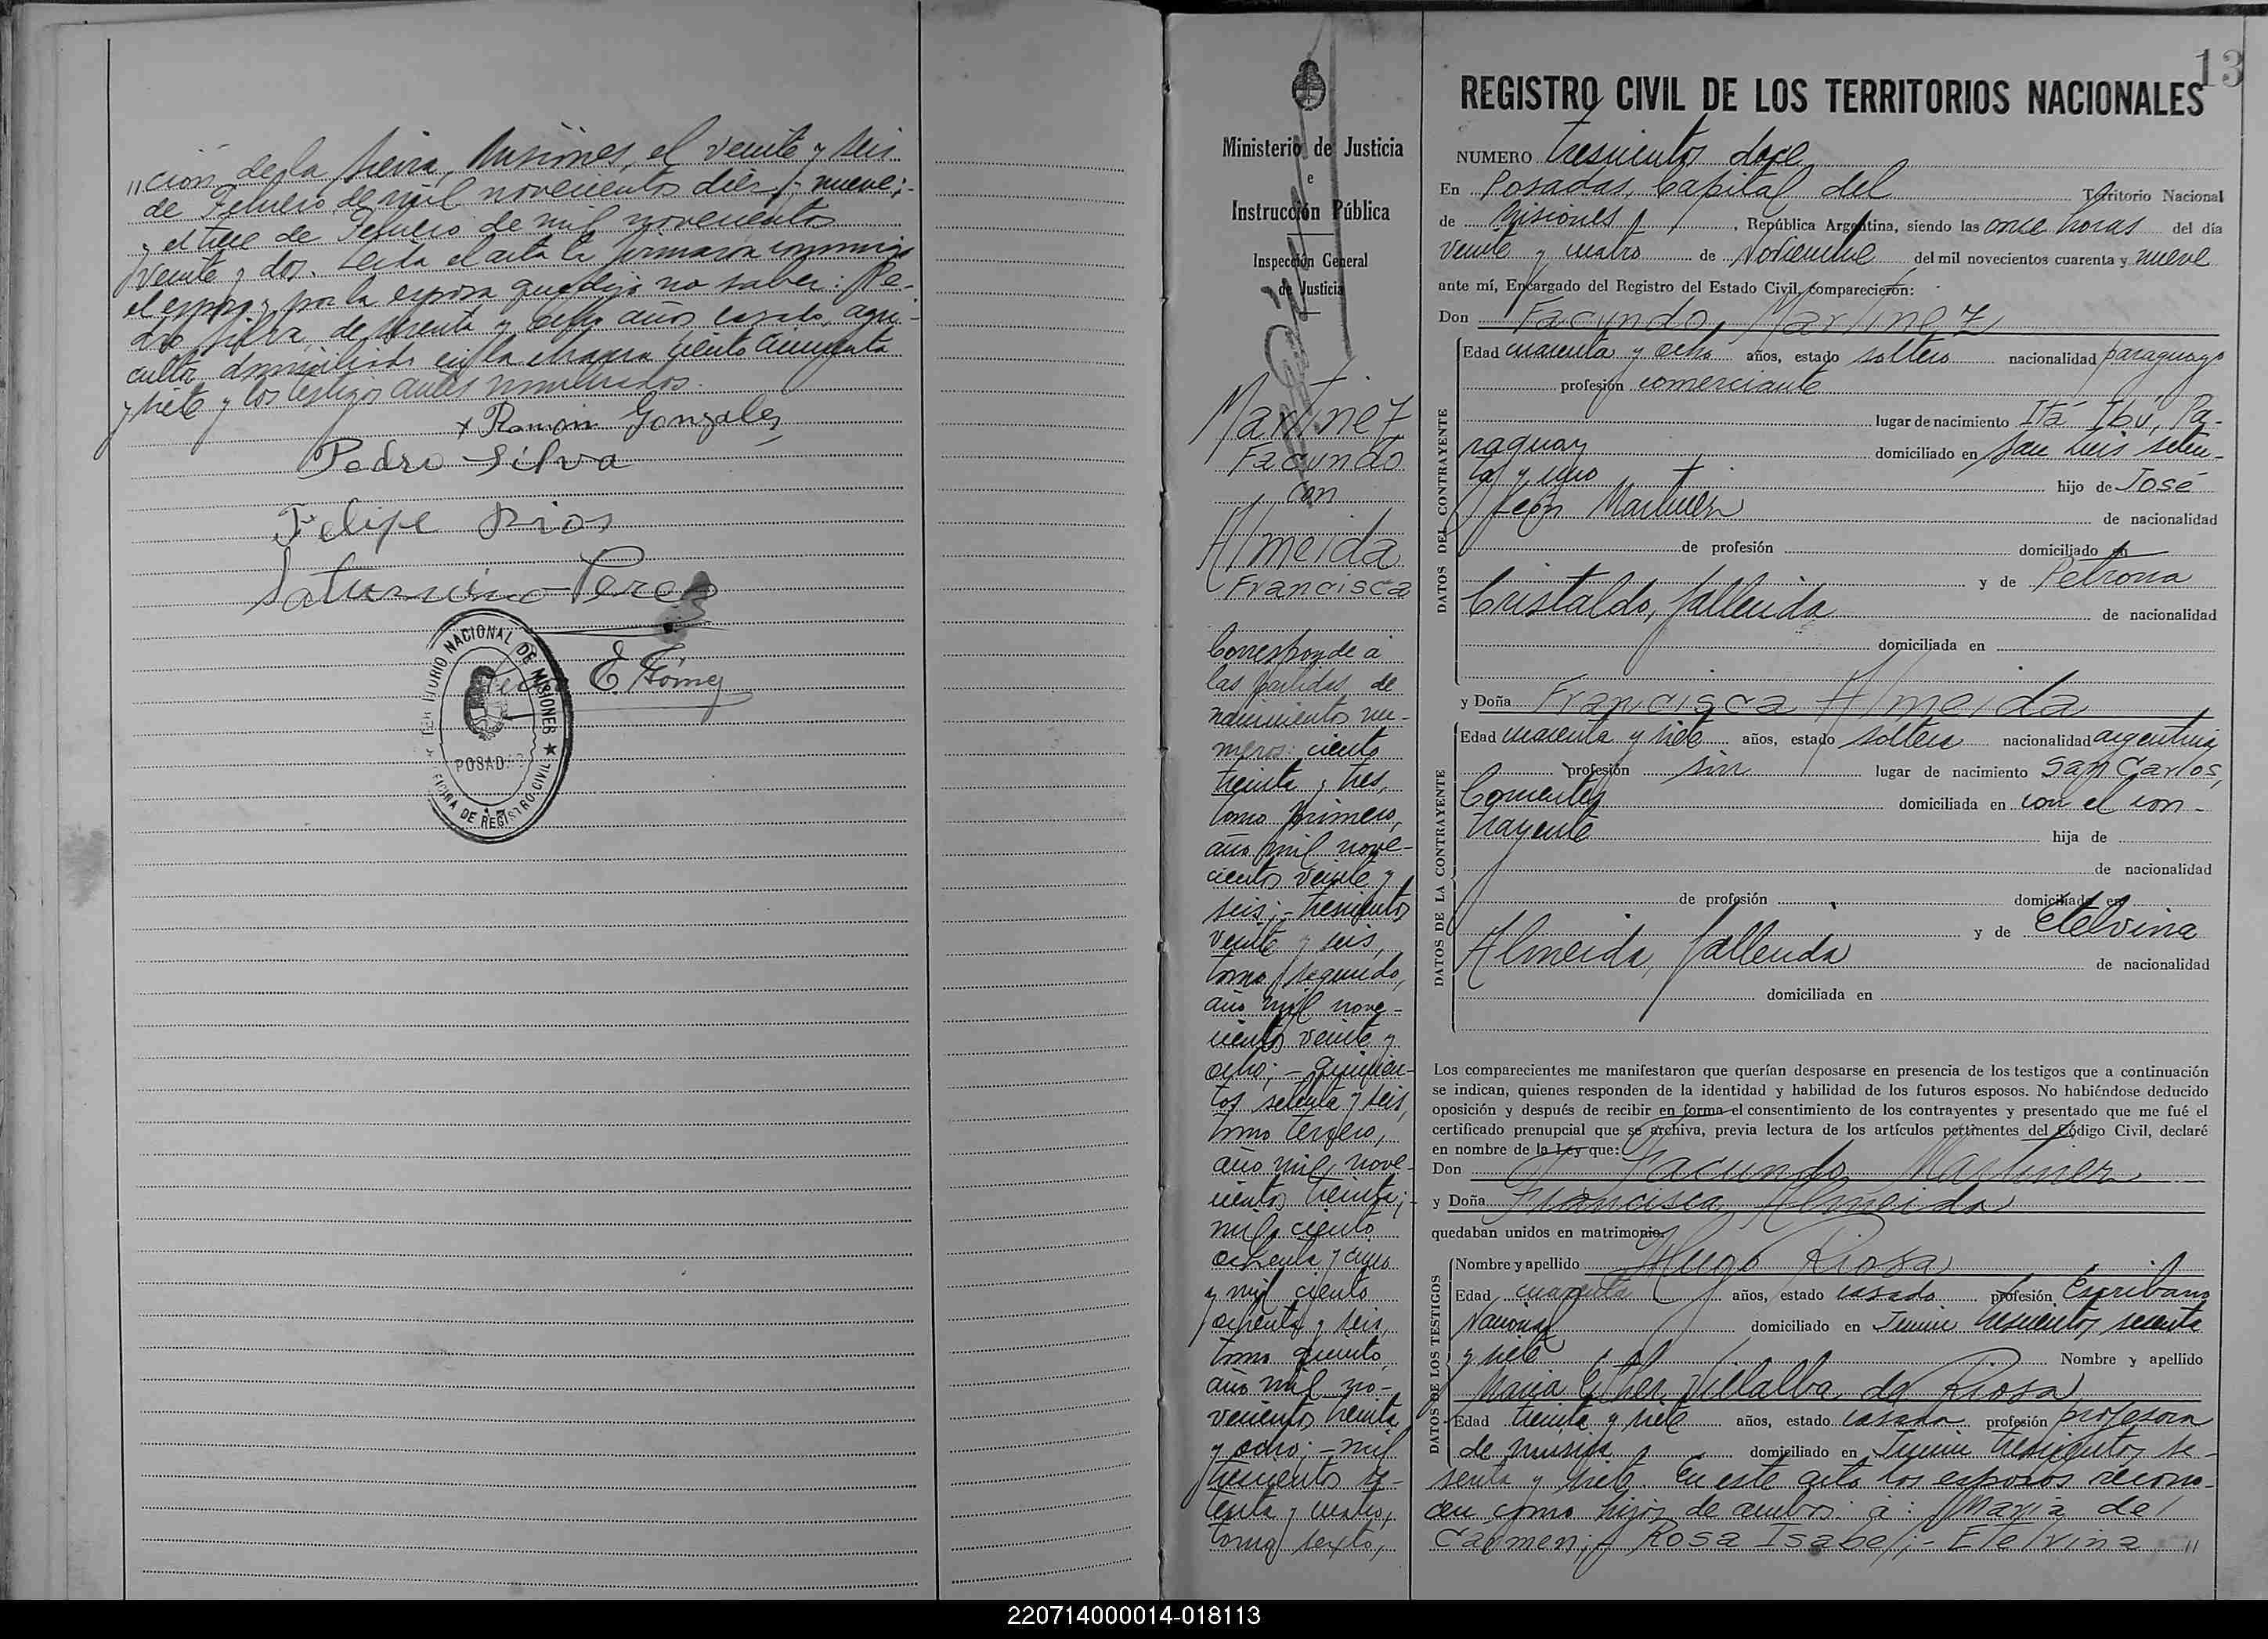 "ción de la Sierra, Misiones, el veinte y seis
de Febrero de mil novecientos diez y nueve;-
y el trece de Febrero de mil novecientos
veinte y dos. Leida el acta la firmaron conmigo
el esposo y por la esposa que dijo no saber: Pe-
dro Silva, de sesenta y ocho años, casado, agri-
cultor domiciliado en la chacra ciento cincuenta
y siete y los testigos antes nombrados.
x Ramón Gonzalez
Pedro Silva
Felipe Rios
Saturnino Perez
E Gómez
TERRITORIO NACIONAL DE MISIONES
POSADAS
OFICINA DE REGISTRO CIVIL
Ministerio de Justicia
e
Instrucción Pública
Inspección General
de Justicia
Martinez
Facundo
con
Almeida
Francisca
Corresponde a
las partidas de
nacimientos nu-
meros: ciento
treinta y tres,
tomo primero,
año mil nove-
cientos veinte y
seis;- trescientos
veinte y seis,
tomo segundo,
año mil nove-
cientos veinte y
ocho;- quinien-
tos setenta y seis,
tomo tercero,
año mil nove-
cientos treinta;-
mil ciento
ochenta y cinco
y mil ciento
ochenta y seis,
tomo quinto,
año mil no-
vecientos treinta
y ocho;- mil
trescientos se-
tenta y cuatro,
tomo sexto,
13
REGISTRO CIVIL DE LOS TERRITORIOS NACIONALES
NUMERO trescientos doce
En Posadas, Capital del Territorio Nacional
de Misiones, República Argentina, siendo las once horas del día
veinte y cuatro de Noviembre del mil novecientos cuarenta y nueve
ante mí, Encargado del Registro del Estado Civil, comparecieron:
Don Facundo Martinez
DATOS DEL CONTRAYENTE
Edad cuarenta y ocho años, estado soltero nacionalidad paraguayo
profesión comerciante
lugar de nacimiento Itá Ibú, Pa-
raguay domiciliado en San Luis seten-
ta y uno hijo de José
León Martinez de nacionalidad
de profesión domiciliado en
y de Petrona
Cristaldo, fallecida de nacionalidad
domiciliada en
y Doña Francisca Almeida
DATOS DE LA CONTRAYENTE
Edad cuarenta y siete años, estado soltera nacionalidad argentina
profesión sin lugar de nacimiento San Carlos,
Corrientes domiciliada en con el con-
trayente hija de
de nacionalidad
de profesión domiciliado en
y de Etelvina
Almeida, fallecida de nacionalidad
domiciliada en
Los comparecientes me manifestaron que querían desposarse en presencia de los testigos que a continuación
se indican, quienes responden de la identidad y habilidad de los futuros esposos. No habiéndose deducido
oposición y después de recibir en forma el consentimiento de los contrayentes y presentado que me fué el
certificado prenupcial que se archiva, previa lectura de los artículos pertinentes del Código Civil, declaré
en nombre de la Ley que:
Don Facundo Martinez
y Doña Francisca Almeida
quedaban unidos en matrimonio.
DATOS DE LOS TESTIGOS
Nombre y apellido Hugo Riosa
Edad cuarenta años, estado casado profesión Escribano
Nacional domiciliado en Junin trescientos sesenta
y siete Nombre y apellido
Maria Esther Villalba de Riosa
Edad treinta y siete años, estado casada profesión profesora
de música domiciliado en Junin trescientos se-
senta y siete. En este acto los esposos recono-
cen como hijos de ambos: a: María del
Carmen;- Rosa Isabel;- Etelvina "
220714000014-018113